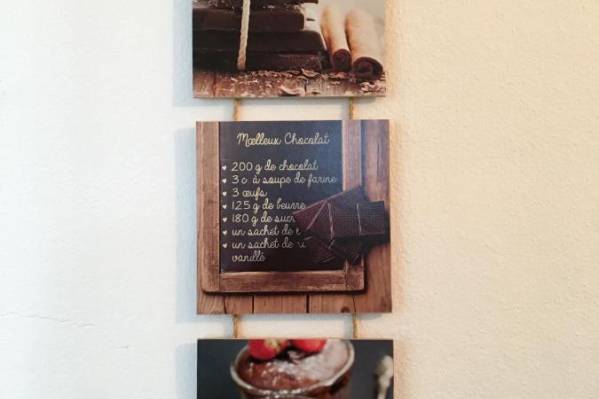 Mœlleux Chocolat
200 g de chocolat
3 c. à soupe de farine
3 œufs
125 g de beurre
180 g de sucr
un sachet de
un sachet de
vanillé